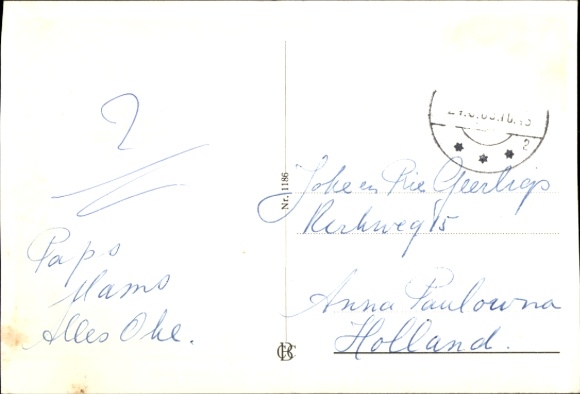 ?
Paps
Mams
Alles Oke.
Nr. 1186
Joke en Rie Geerligs
Kerkweg 15
Anna Paulowna
Holland.
2